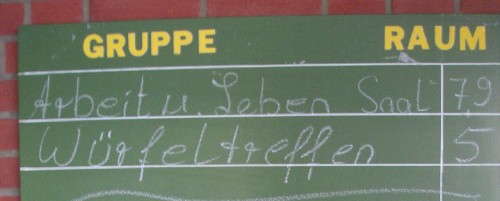 GRUPPE RAUM
Arbeit u. Leben Saal 79
Würfeltreffen 5